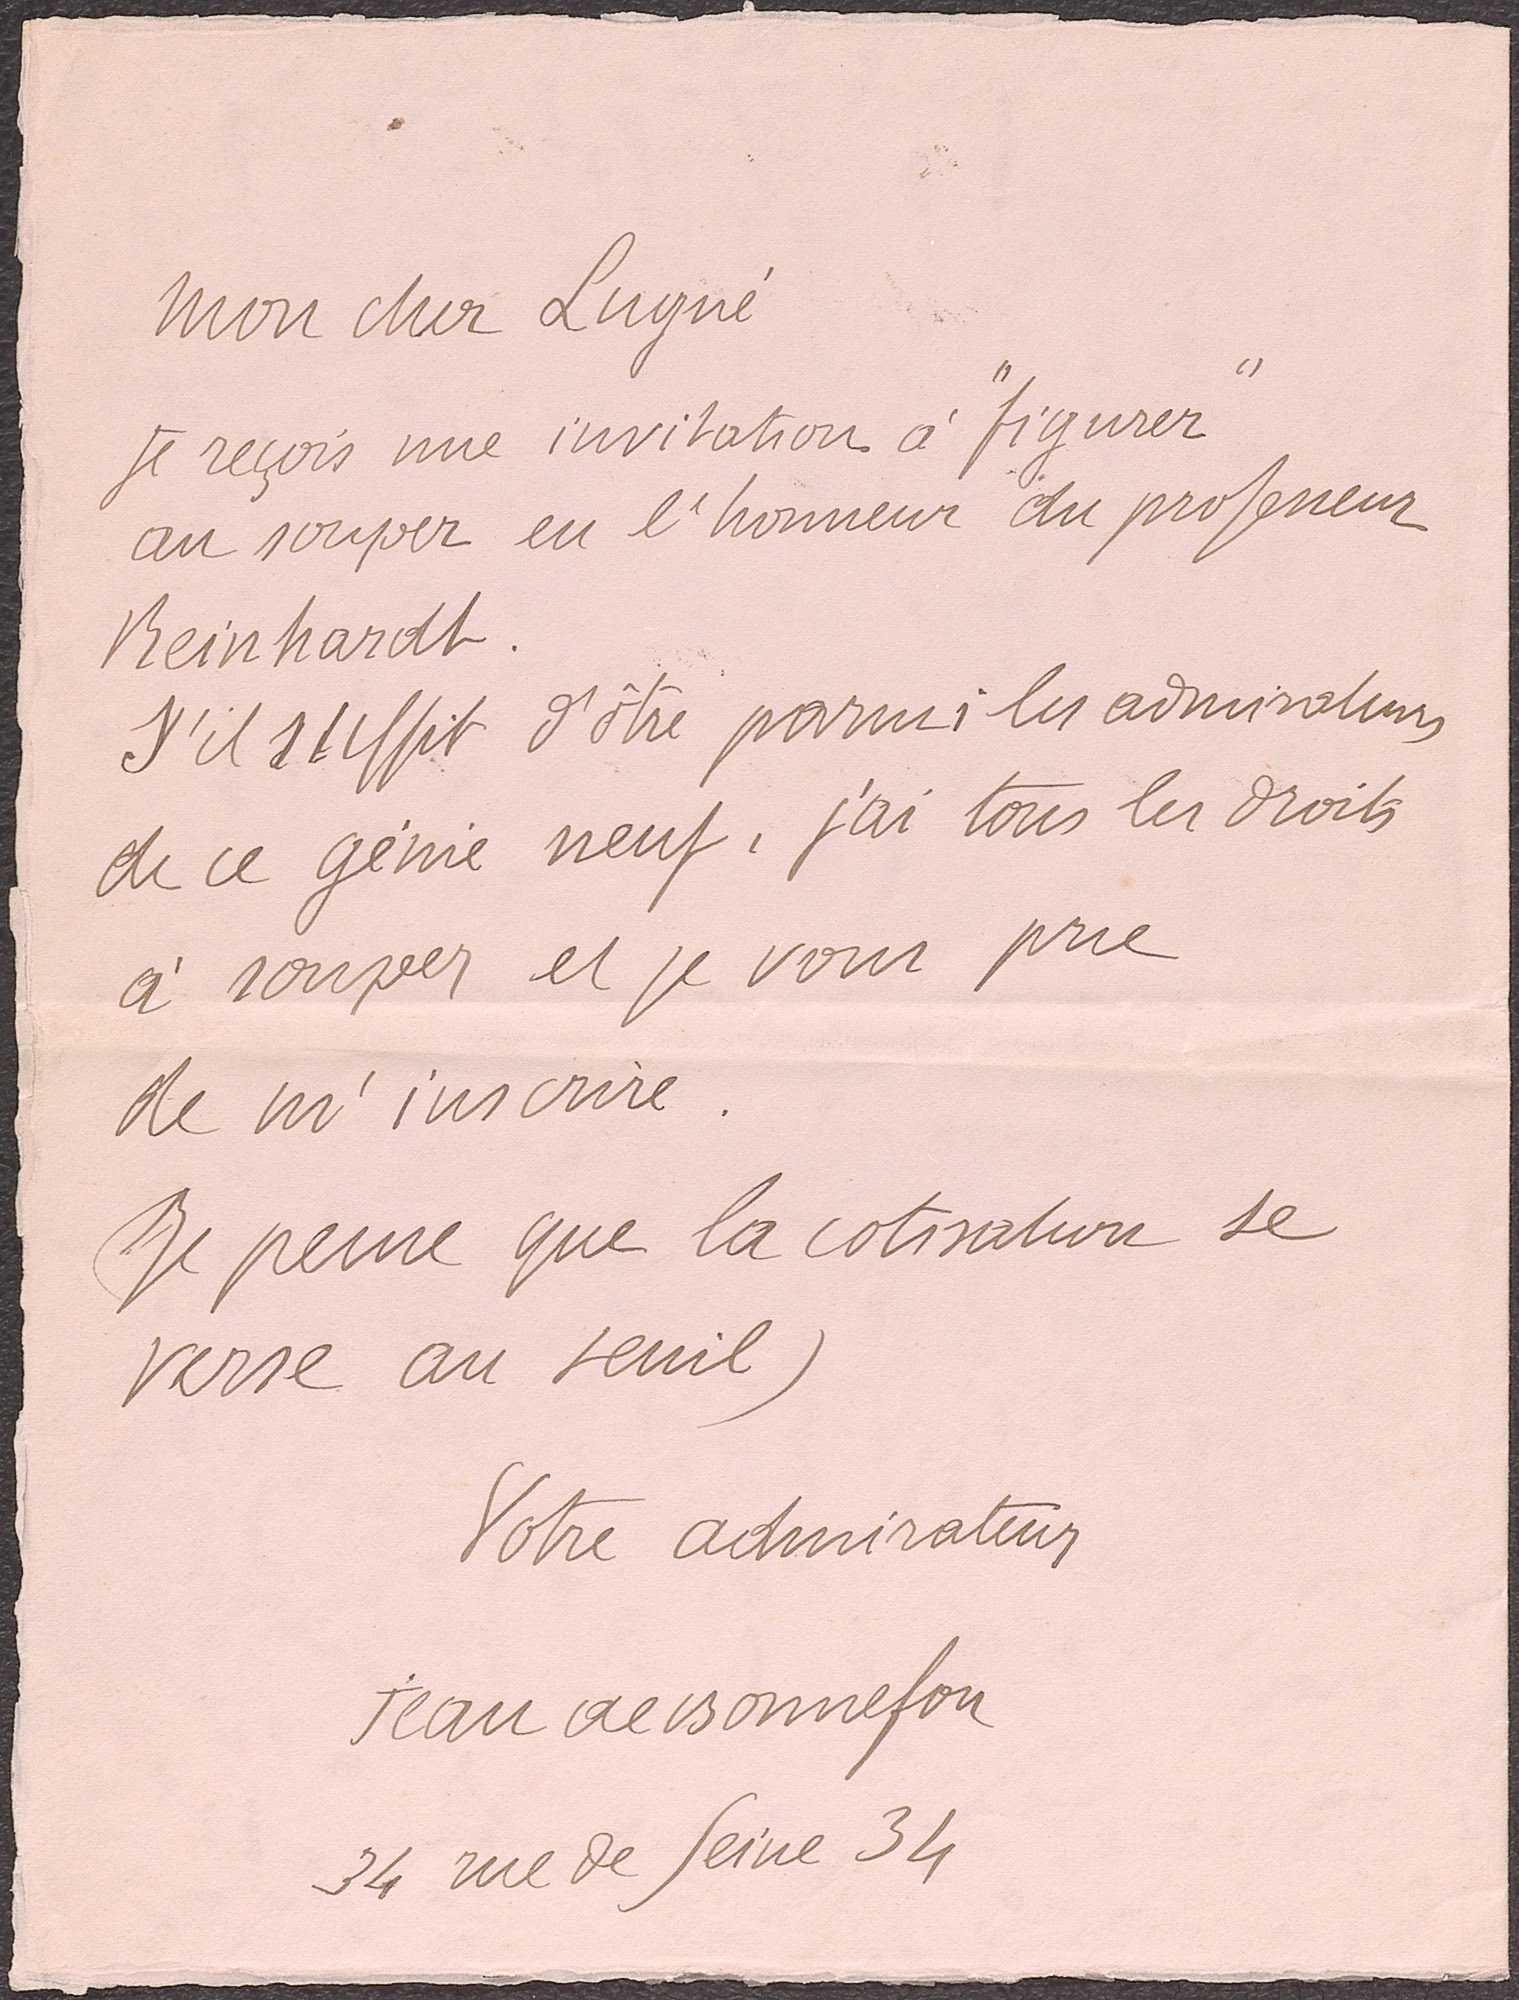 Mon cher Lugné
Je reçois une invitation à "figurer"
au souper en l'honneur du professeur
Reinhardt.
S'il suffit d'être parmi les admirateurs
de ce génie neuf, j'ai tous les droits
à souper et je vous prie
de m'inscrire.
(Je pense que la cotisation se
verse au seuil)
Votre admirateur
Jean de Bonnefon
34 rue de Seine 34